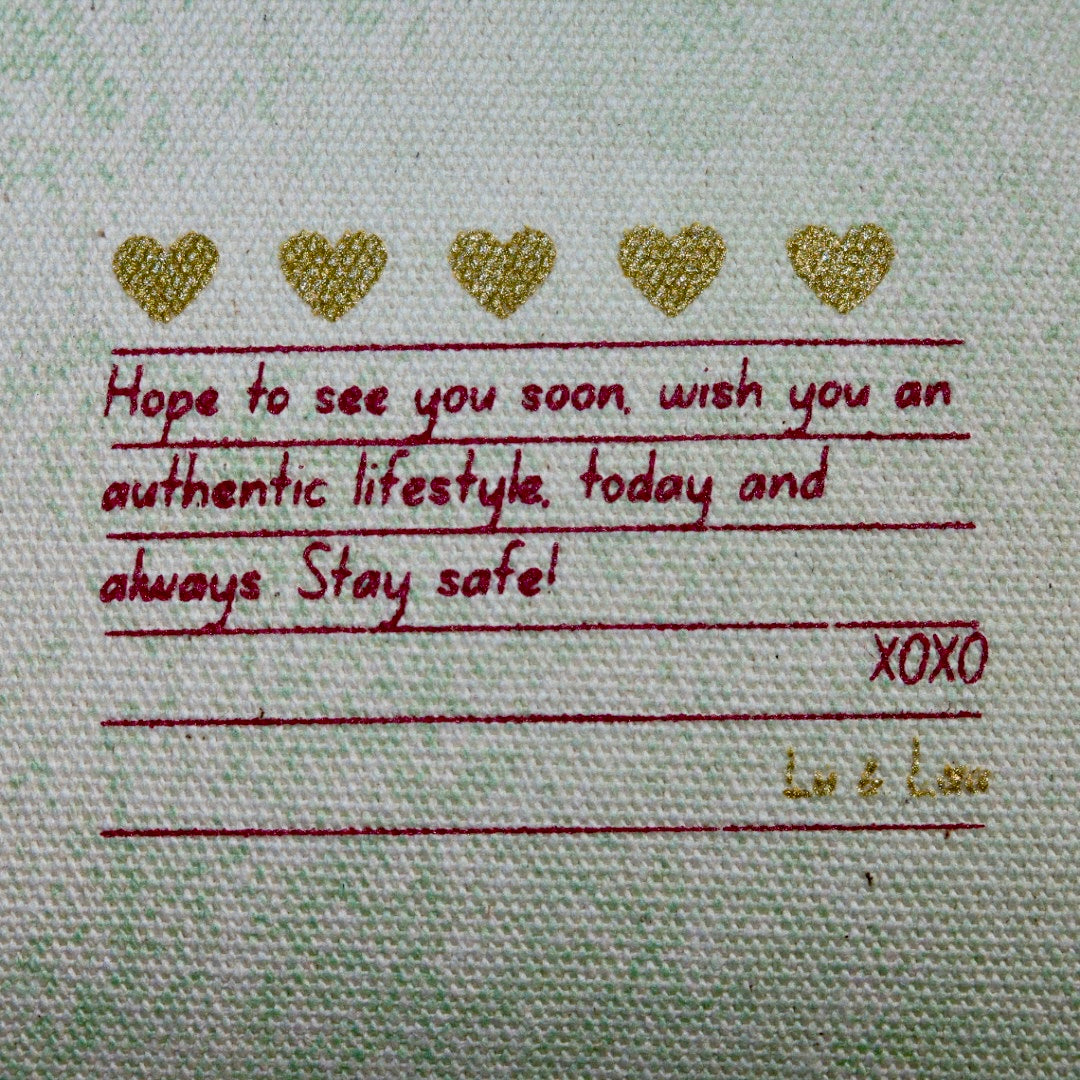 Hope to see you soon, wish you an
authentic lifestyle, today and
always. Stay safe!
XOXO
Lu & Lau